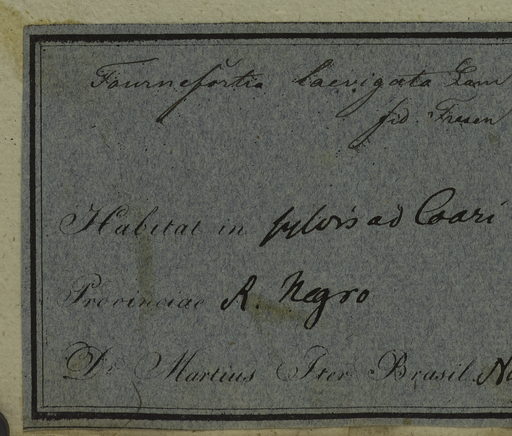 Tournefortia laevigata Lam
fid. Fresen
Habitat in sylvis ad Coari
Provinciae R. Negro
Dr. Martius Iter Brasil.